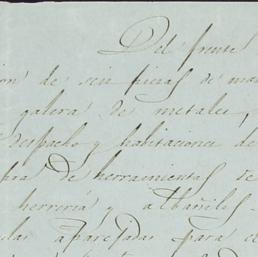 Del frente
ion de seis piezas de ma
galera de metales,
Despacho y habitaciones de
bra de herramientas de
herrería y albañiles.
las aparejadas para